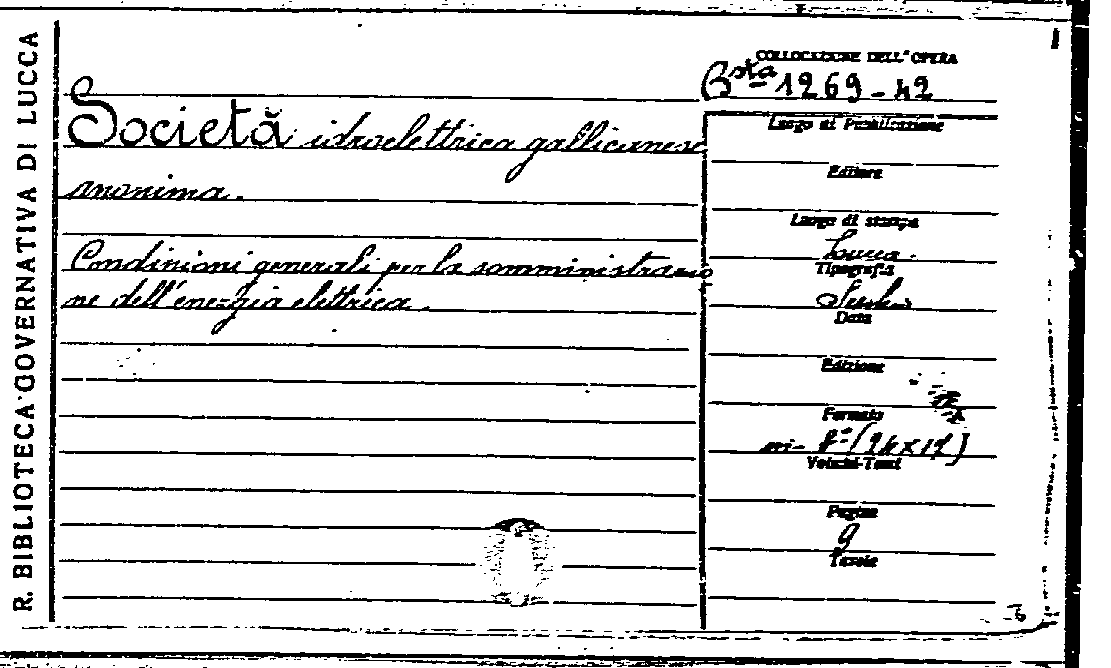 R. BIBLIOTECA GOVERNATIVA DI LUCCA
Società idroelettrica gallicanese
anonima.
Condizioni generali per la somministrazio
ne dell'energia elettrica.
COLLOCAZIONE DELL'OPERA
Bsta 1269-42
Luogo di Pubblicazione
Editore
Luogo di stampa
Lucca.
Tipografia
Data
Edizione
Formato
in-8º (24x17)
Volumi-Tomi
Pagine
9
Tavole